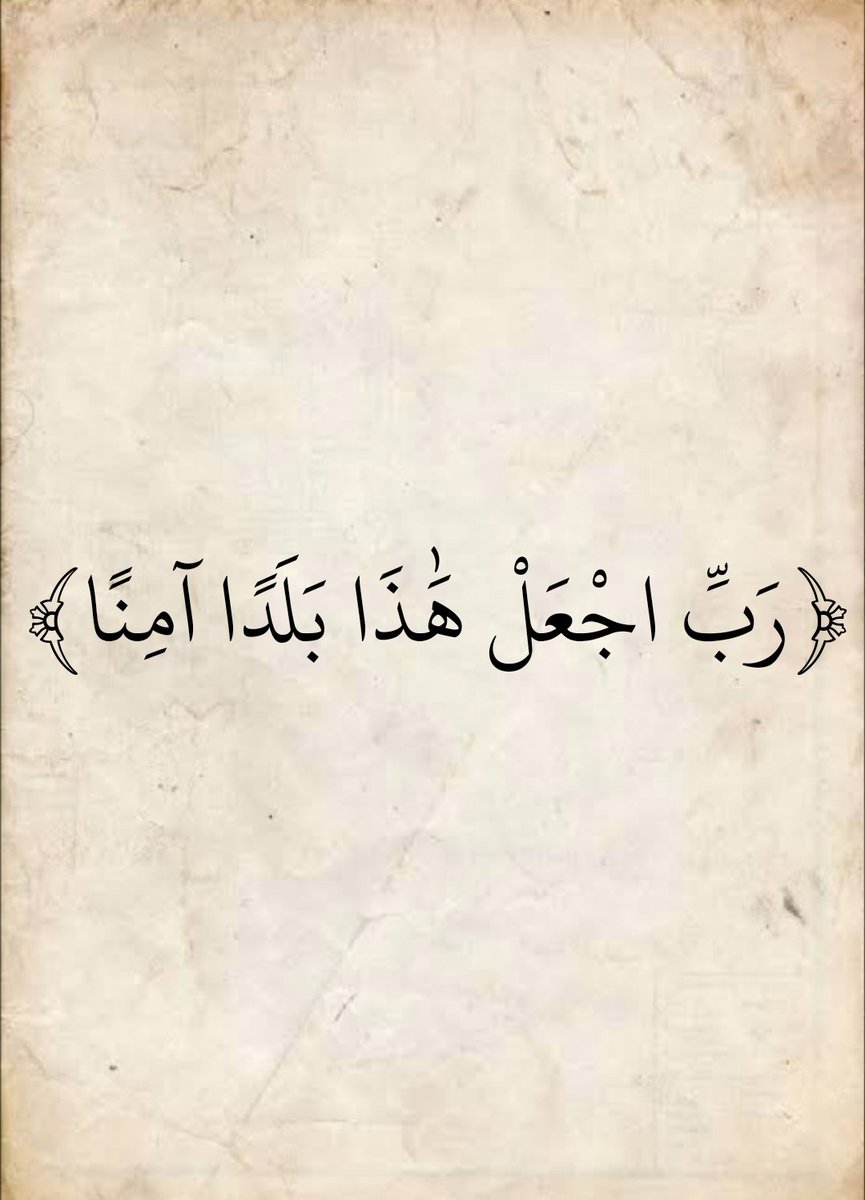 ﴿رَبِّ اجْعَلْ هَٰذَا بَلَدًا آمِنًا﴾